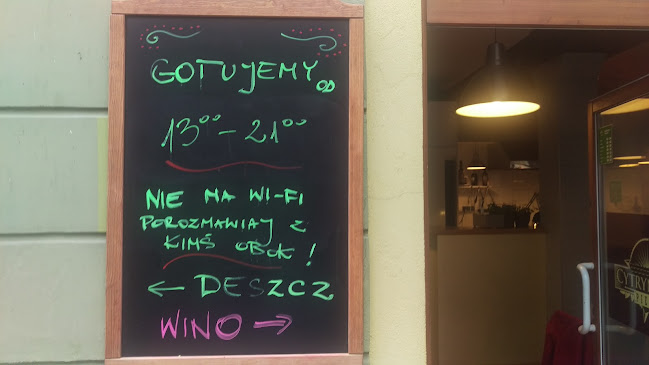 GOTUJEMY OD
13⁰⁰ – 21⁰⁰
NIE MA WI-FI
POROZMAWIAJ Z
KIMŚ OBOK!
← DESZCZ
WINO →